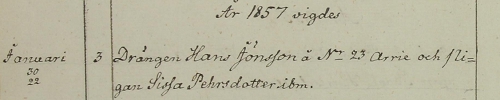 År 1857 vigdes
Januari 3 Drängen Hans Jönsson å Nr 23 Arrie och fli-
30
22
gan Sissa Pehrsdotter ibm.